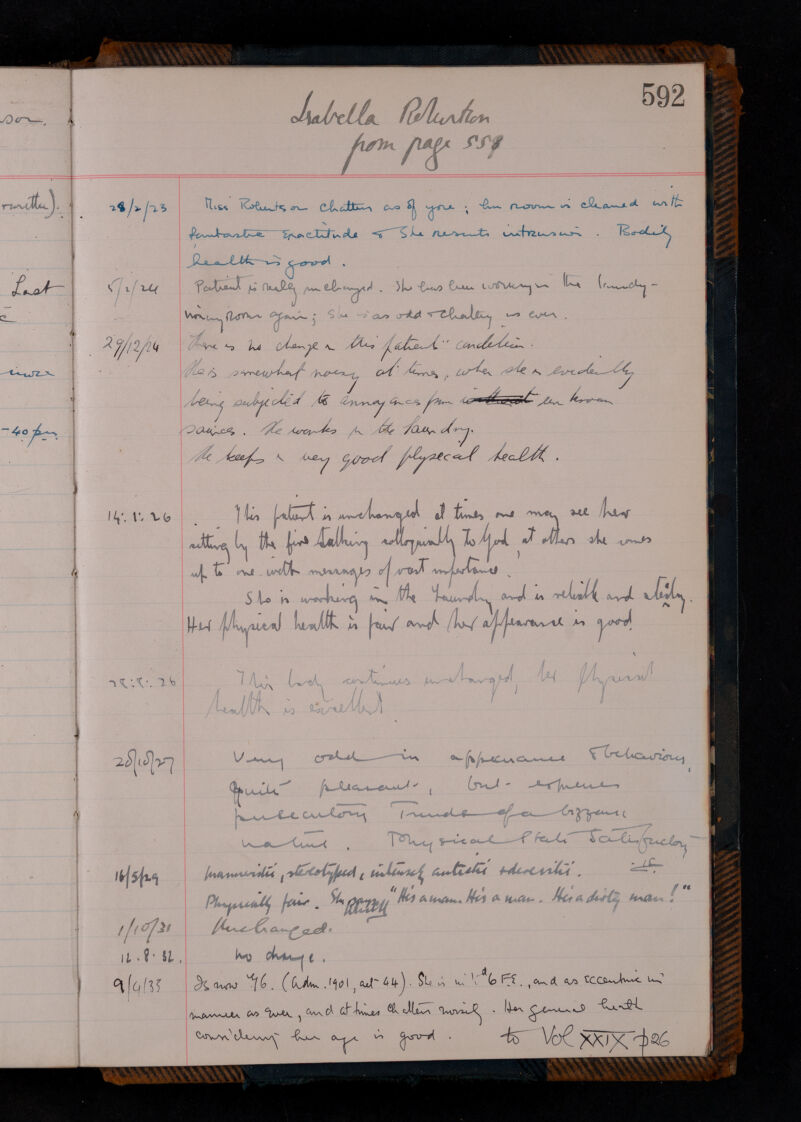 592
Isabella Robertson
from page 559
son.
rewritten).
28/2/23 Miss Robertson chatters as of yore; her room is cleaned with
fantastic exactitude & she resents intrusion. Bodily
health is good.
Last
5/2/24 Patient is really unchanged. She has been working in the laundry-
ironing room again; she is as odd & chattery as ever.
29/12/24 There is no change in this patient's condition.
She is somewhat noisy at times, when she is evidently
more
being subjected to annoyances from unknown
-40 pm.
sources. She works in the laundry.
She keeps in very good physical health.
14:1:26 This patient is unchanged at times one may see her
sitting by the fire talking colloquially to God, at others she comes
up to one with messages of vast importance.
She is working in the Laundry and is reliable and steady.
Her physical health is fair and her appearance is good.
:26 This lady continues unchanged, her physical
health is excellent.
28/10/27 Very odd in appearance & behaviour,
Quite pleasant, but expresses
persecutory Trends of a bizarre
nature. Physical State Satisfactory
16/5/29 Manneristic, stereotyped, intensely autistic & dereistic.
Physically fair. She says "He's a man. He's a man. He's a dirty man!"
1/10/31 Unchanged.
12.8.32. No change.
9/4/33 Is now 76. (Adm. 1901, aet 44). She is in F.E., and as eccentric in
manner as ever, and at times chatters noisily. Her general health
considering her age is good. to Vol XXIX p26